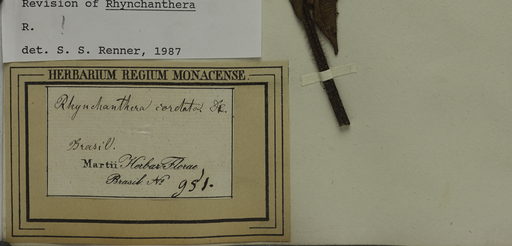 Revision of Rhynchanthera
R. !
det. S. S. Renner, 1987
HERBARIUM REGIUM MONACENSE.
Rhynchanthera cordata
Brasil.
Martii Herbar. Florae
Brasil. No 951.